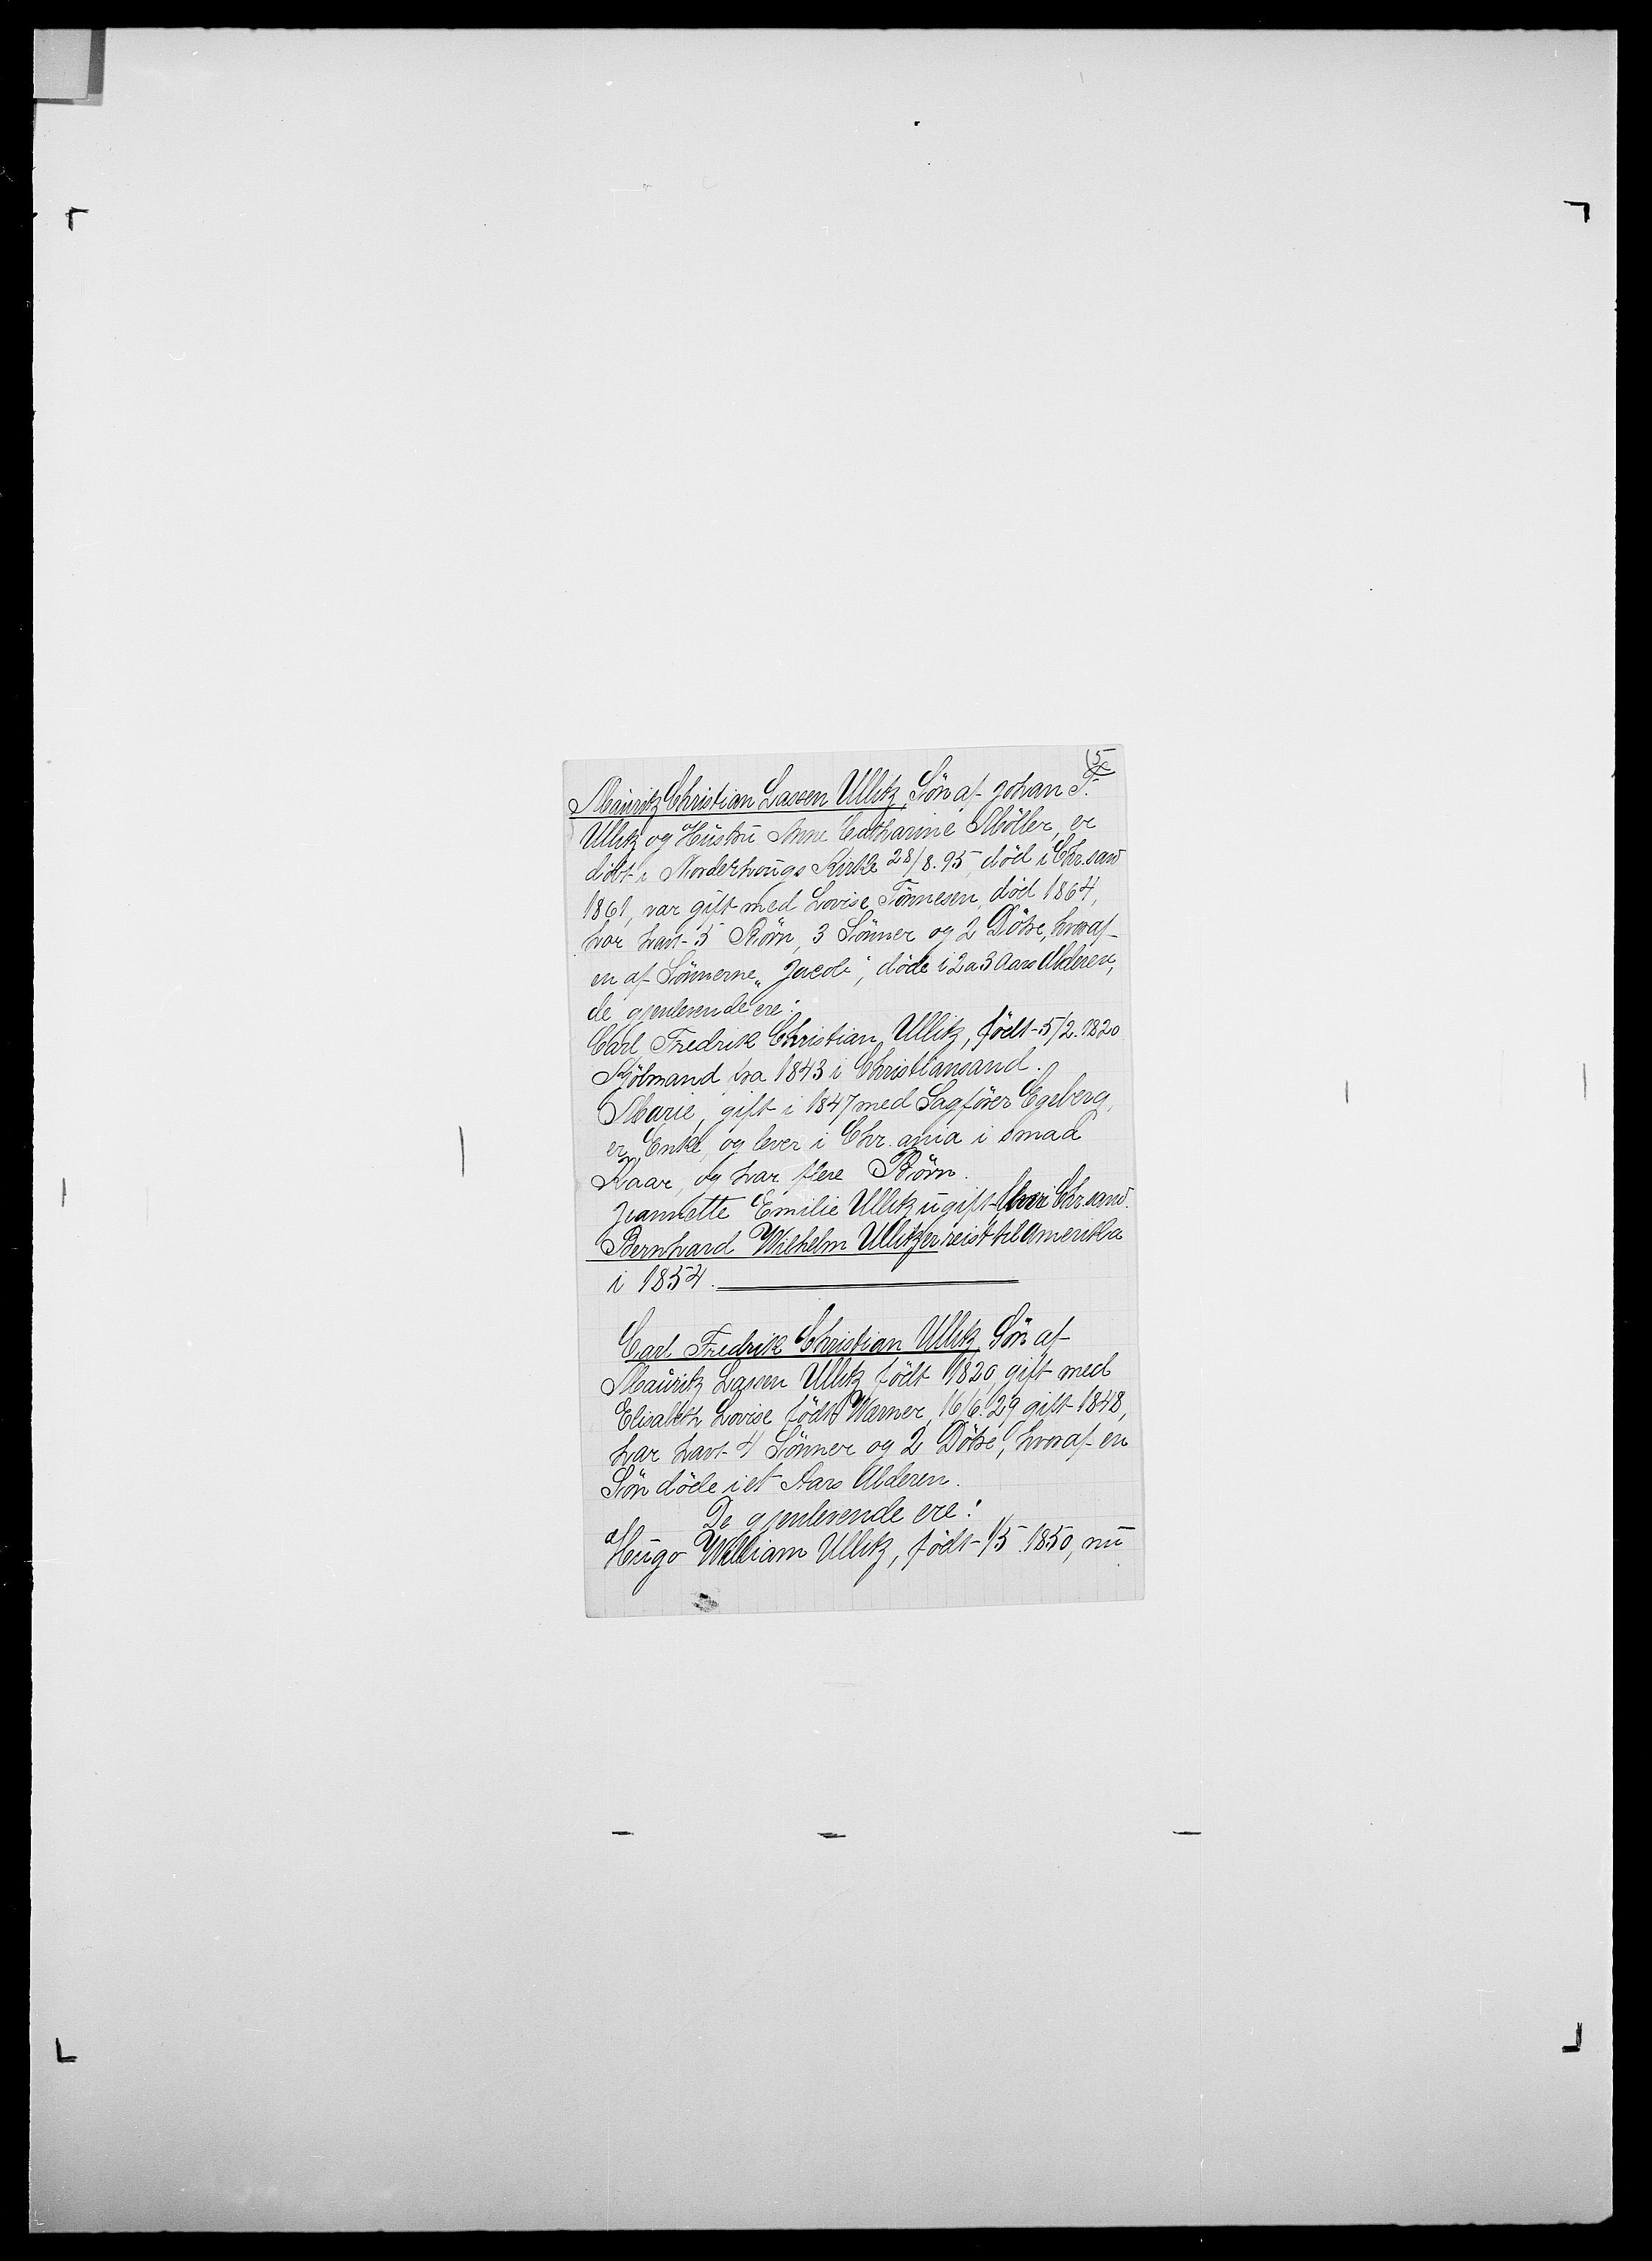 5
Mauritz Christian Lassen Ullitz, Søn af Johan F.
Ullitz og Hustru Anne Catharine Möller, er
döbt i Norderhougs Kirke 28/8.95, död i Chr.sand
1861, var gift med Lovise Tönnesen, död 1864,
har havt 5 Börn, 3 Sönner og 2 Dötre, hvoraf
en af Sönnerne „Jacob“, döde i 2 a 3 Aars Alderen,
de gjenlevende ere:
Carl Fredrik Christian Ullitz, födt 5/2.1820
Kjöbmand fra 1843 i Christiansand.
Marie, gift i 1847 med Sagförer Egeberg,
er Enke, og lever i Chr.ania i smaa
Kaar, og har flere Börn.
Jeannette Emilie Ullitz ugift i Chr.sand.
Bernhard Wilhelm Ullitz er reist til Amerika
i 1854.
Carl Fredrik Christian Ullitz, Sön af
Mauritz Lassen Ullitz födt 1820, gift med
Elisabeth Lovise födt Warner, 16/6.29 gift 1848,
har havt 4 Sönner og 2 Dötre, hvoraf en
Sön döde i et Aars Alderen.
De gjenlevende ere:
Hugo William Ullitz, födt 1/5.1850, nu